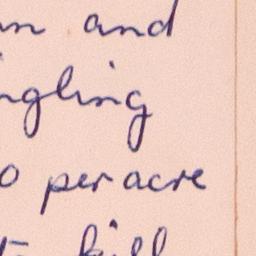 and
ngling
0 per acre
to kill